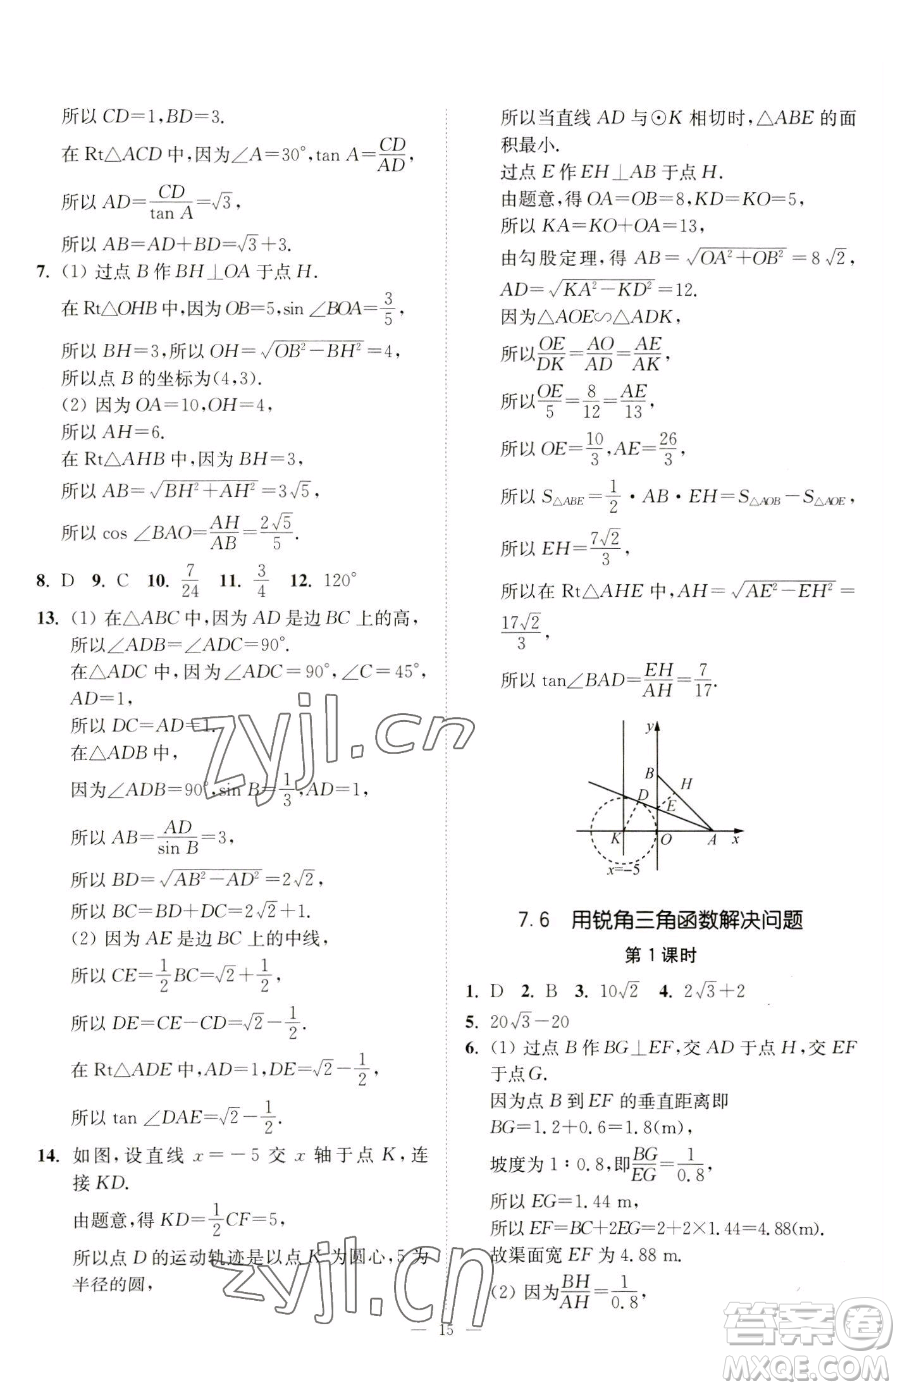 所以 CD=1,BD=3.
在 Rt△ACD 中,因为∠A=30°,tan A=CD/AD,
所以 AD=CD/tan A=√3,
所以 AB=AD+BD=√3+3.
7. (1) 过点 B 作 BH⊥OA 于点 H.
在 Rt△OHB 中,因为 OB=5,sin ∠BOA=3/5,
所以 BH=3,所以 OH=√(OB²-BH²)=4,
所以点 B 的坐标为(4,3).
(2) 因为 OA=10,OH=4,
所以 AH=6.
在 Rt△AHB 中,因为 BH=3,
所以 AB=√(BH²+AH²)=3√5,
所以 cos ∠BAO=AH/AB=2√5/5.
8. D 9. C 10. 7/24 11. 3/4 12. 120°
13. (1) 在△ABC 中,因为 AD 是边 BC 上的高,
所以∠ADB=∠ADC=90°.
在△ADC 中,因为∠ADC=90°,∠C=45°,
AD=1,
所以 DC=AD=1.
在△ADB 中,
因为∠ADB=90°,sin B=1/3,
所以 AB=AD/sin B=3,
所以 BD=√(AB²-AD²)=2√2,
所以 BC=BD+DC=2√2+1.
(2) 因为 AE 是边 BC 上的中线,
所以 CE=1/2BC=√2+1/2,
所以 DE=CE-CD=√2-1/2.
在 Rt△ADE 中,因为 AD=1,DE=√2-1/2,
所以 tan ∠DAE=√2-1/2.
14. 如图,设直线 x=-5 交 x 轴于点 K,连
接 KD.
由题意,得 KD=1/2CF=5,
所以点 D 的运动轨迹是以点 K 为圆心,5 为
半径的圆,
所以当直线 AD 与⊙K 相切时,△ABE 的面
积最小.
过点 E 作 EH⊥AB 于点 H.
由题意,得 OA=OB=8,KD=KO=5,
所以 KA=KO+OA=13,
由勾股定理,得 AB=√(OA²+OB²)=8√2,
AD=√(KA²-KD²)=12.
因为△AOE∽△ADK,
所以OE/DK=AO/AD=AE/AK,
所以OE/5=8/12=AE/13,
所以 OE=10/3,AE=26/3,
所以 S△ABE=1/2·AB·EH=S△AOB-S△AOE,
所以 EH=7√2/3,
所以在 Rt△AHE 中,AH=√(AE²-EH²)=
17√2/3,
所以 tan∠BAD=EH/AH=7/17.
y
B
H
D
E
K
O
A
x
x=-5
7.6 用锐角三角函数解决问题
第 1 课时
1. D 2. B 3. 10√2 4. 2√3+2
5. 20√3-20
6. (1) 过点 B 作 BG⊥EF,交 AD 于点 H,交 EF
于点G.
因为点 B 到 EF 的垂直距离即
BG=1.2+0.6=1.8(m),
坡度为 1∶0.8,即BG/EG=1/0.8,
所以 EG=1.44 m,
所以 EF=BC+2EG=2+2×1.44=4.88(m).
故渠面宽 EF 为 4.88 m.
(2) 因为BH/AH=1/0.8,
15
zyjl.cn
zyjl.cn
答案圈
MXQE.COM